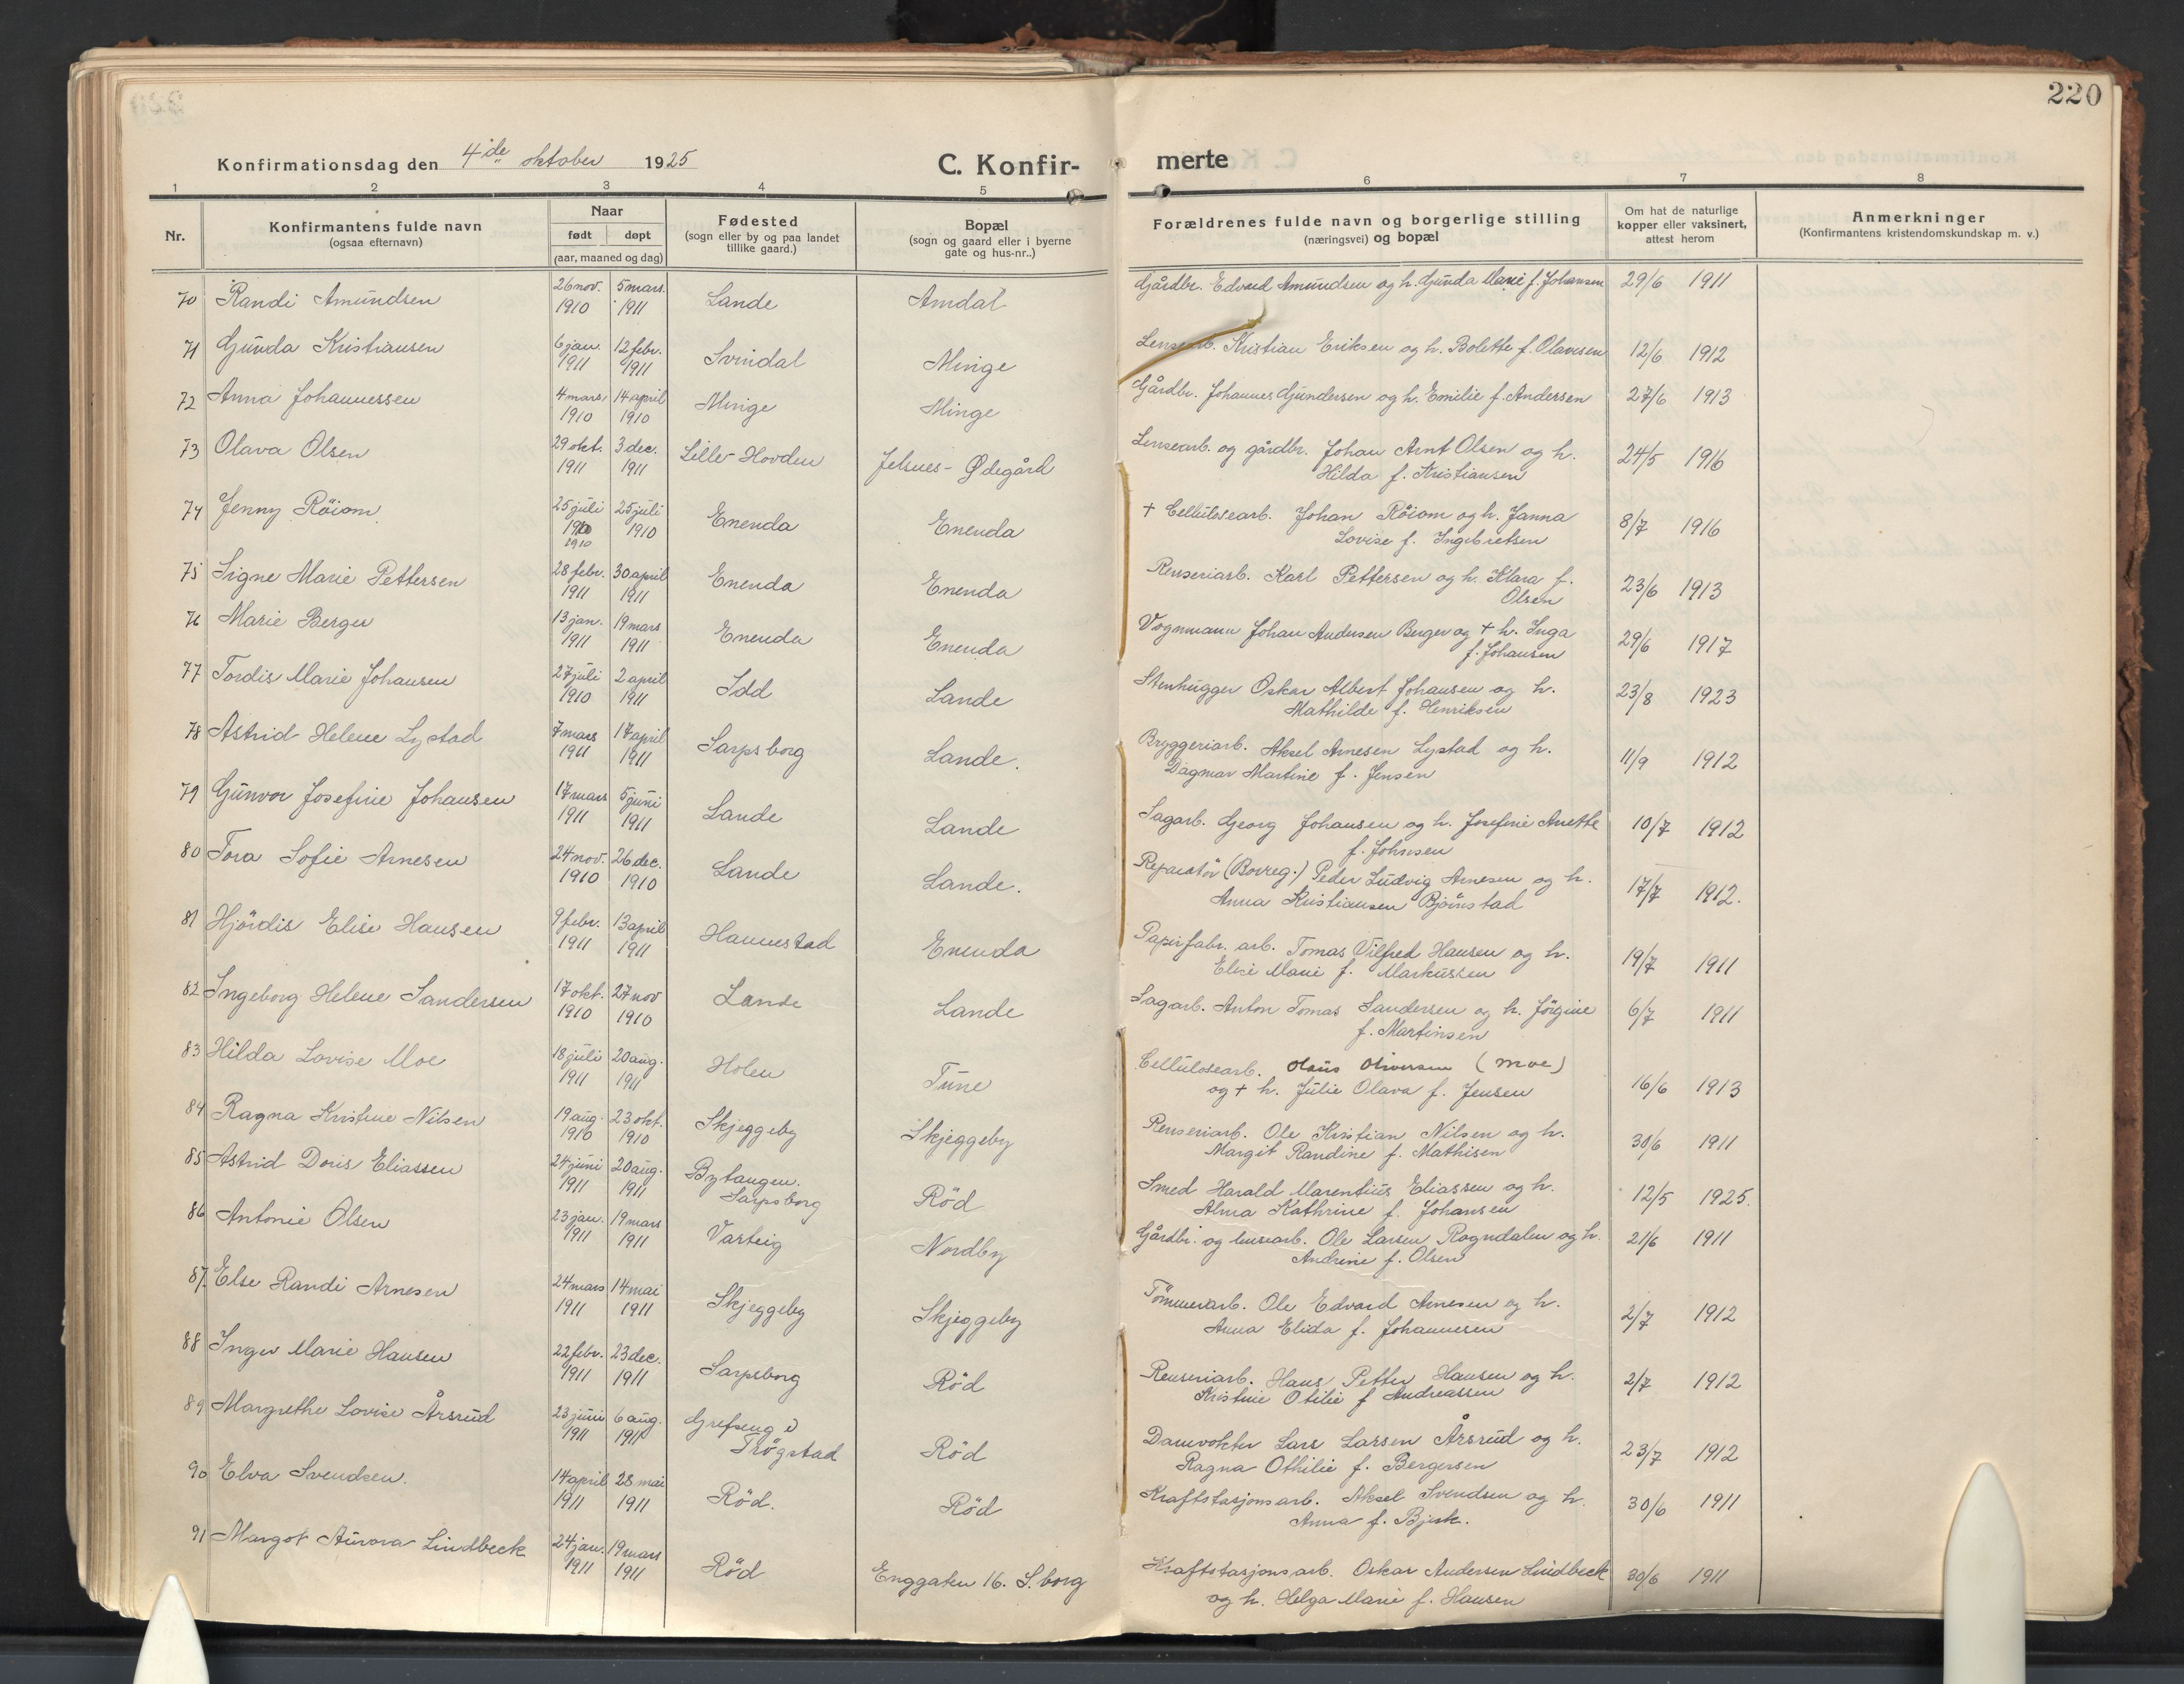 220
Konfirmationsdag den 4de oktober 1925 C. Konfir- merte
1 2 3 4 5 6 7 8
Nr. Konfirmantens fulde navn (ogsaa efternavn) Naar født døpt (aar, maaned og dag) Fødested (sogn eller by og paa landet tillike gaard.) Bopæl (sogn og gaard eller i byerne gate og hus-nr..) Forældrenes fulde navn og borgerlige stilling (næringsvei) og bopæl Om hat de naturlige kopper eller vaksinert, attest herom Anmerkninger (Konfirmantens kristendomskundskap m. v.)
70 Randi Amundsen 26 nov. 1910 5 mars. 1911 Lande Amdal Gårdbr. Edvard Amundsen og h. Gunda Marie f. Johansen 29/6 1911
71 Gunda Kristiansen 6 jan. 1911 12 febr. 1911 Svindal Minge Lensearb. Kristian Eriksen og h. Bolette f. Olavesen 12/6 1912
72 Anna Johannessen 4 mars. 1910 14 april 1910 Minge Minge Gårdbr. Johannes Gundersen og h. Emilie f. Andersen 27/6 1913
73 Olava Olsen 29 okt. 1911 3 dec. 1911 Lille-Hovden Jelsnes-Ødegård Lensearb. og gårdbr. Johan Arnt Olsen og h.
Hilda f. Kristiansen 24/5 1916
74 Jenny Röiom 25 juli 1910 1910 25 juli 1910 Enenda Enenda + Cellulosearb. Johan Röiom og h. Janna
Lovise f. Ingebretsen 8/7 1916
75 Signe Marie Pettersen 28 febr. 1911 30 april 1911 Enenda Enenda Renseriarb. Karl Pettersen og h. Klara f.
Olsen 23/6 1913
76 Marie Berger 13 jan. 1911 19 mars 1911 Enenda Enenda Vognmann Johan Andersen Berger og + h. Inga
f. Johansen 29/6 1917
77 Tordis Marie Johansen 27 juli 1910 2 april 1911 Idd Lande Stenhugger Oskar Albert Johansen og h.
Mathilde f. Henriksen 23/8 1923
78 Astrid Helene Lystad 7 mars 1911 17 april 1911 Sarpsborg Lande. Bryggeriarb. Aksel Arnesen Lystad og h.
Dagmar Martine f. Jensen 11/9 1912
79 Gunvor Josefine Johansen 17 mars 1911 5 juni 1911 Lande Lande Sagarb. Georg Johansen og h. Josefine Anette
f. Johnsen 10/7 1912
80 Tora Sofie Arnesen 24 nov. 1910 26 dec. 1910 Lande Lande. Reparatör (Borreg.) Peder Ludvig Arnesen og h.
Anna Kristiansen Björnstad 17/7 1912.
81 Hjördis Elise Hansen 9 febr. 1911 13 april 1911 Hannestad Enenda Papirfabr. arb. Tomas Vilfred Hansen og h.
Elise Marie f. Markussen 19/7 1911
82 Ingeborg Helene Sandersen 17 okt. 1910 27 nov 1910 Lande Lande Sagarb. Anton Tomas Sandersen og h. Jörgine
f. Martinsen 6/7 1911
83 Hilda Lovise Moe 18 juli 1911 20 aug. 1911 Holen Tune Cellulosearb. Olaus Oliversen (Moe)
og + h. Julie Olava f. Jensen 16/6 1913
84 Ragna Kristine Nilsen 19 aug. 1910 23 okt. 1910 Skjeggeby Skjeggeby Renseriarb. Ole Kristian Nilsen og h.
Margit Randine f. Mathisen 30/6 1911
85 Astrid Doris Eliassen 24 juni 1911 20 aug. 1911 Bytangen. Sarpsborg Röd Smed Harald Marentius Eliassen og h.
Alma Kathrine f. Johansen 12/5 1925.
86 Antonie Olsen 23 jan. 1911 19 mars 1911 Varteig Nordby Gårdbr. og lensearb. Ole Larsen Rogndalen og h.
Andrine f. Olsen 21/6 1911
87. Else Randi Arnesen 24 mars 1911 14 mai 1911 Skjeggeby Skjeggeby Tömmerarb. Ole Edvard Arnesen og h.
Anna Elida f. Johannesen 2/7 1912
88 Inger Marie Hansen 22 febr. 1911 23 dec. 1911 Sarpsborg Röd Renseriarb. Hans Petter Hansen og h.
Kristine Otilie f Andreassen 2/7 1912
89 Margrethe Lovise Årsrud 23 juni 1911 6 aug. 1911 Grefseng i Trögstad Röd Damvokter Lars Larsen Årsrud og h.
Ragna Othilie f. Bergersen 23/7 1912
90 Elva Svendsen. 14 april 1911 28 mai 1911 Röd. Röd Kraftstasjonsarb. Aksel Svendsen og h.
Anna f. Bjerk. 30/6 1911
91 Margot Aurora Lindbeck 24 jan. 1911 19 mars 1911 Röd Enggaten 16. S.borg Kraftstasjonsarb. Oskar Andersen Lindbeck
og h. Helga Marie f. Hansen 30/6 1911